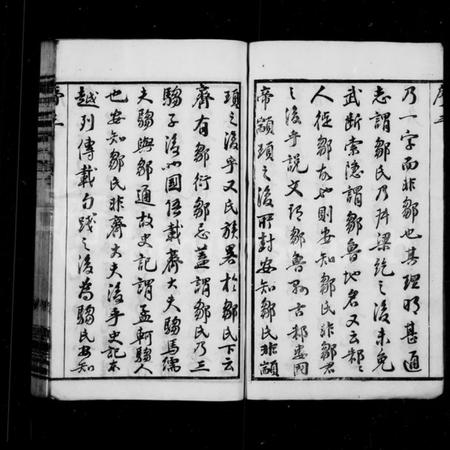 乃一字而非鄒也其理明甚通
志謂鄒氏乃陬梁紇之後未免
武斷索隱謂鄒魯地名又云鄒
人徑鄒氏則安知鄒氏非鄒君
之後乎說文鄒魯縣古邾婁國
帝顓頊之後所封安知鄒氏非顓
頊之後乎又氏族畧於鄒氏下云
齊有鄒衍鄒忌蓋謂鄒氏乃三
騶子後也國語載齊大夫騶馬繻
夫騶與鄒通故史記謂孟軻騶人
也安知鄒氏非齊大夫後乎史記東
越列傳載句踐之後為騶氏安知
序三